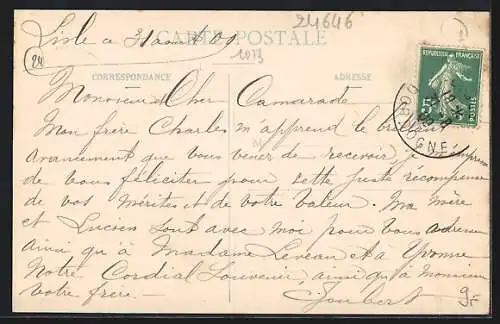 24646
Lisle ce 31 août 09
CARTE POSTALE
1073
24
CORRESPONDANCE
ADRESSE
RÉPUBLIQUE FRANÇAISE
5
POSTES
DORDOGNE
Monsieur et Cher Camarade
Mon frère Charles m'apprend le bel
avancement que vous venez de recevoir, je m'empresse
de vous féliciter pour cette juste récompense
de vos Mérites et de votre valeur. Ma mère
et Lucien sont avec moi pour vous adresser
ainsi qu'à Madame Leveau et à Yvonne
Notre Cordial Souvenir, ainsi qu'à Monsieur
votre frère.
Joubert
9F